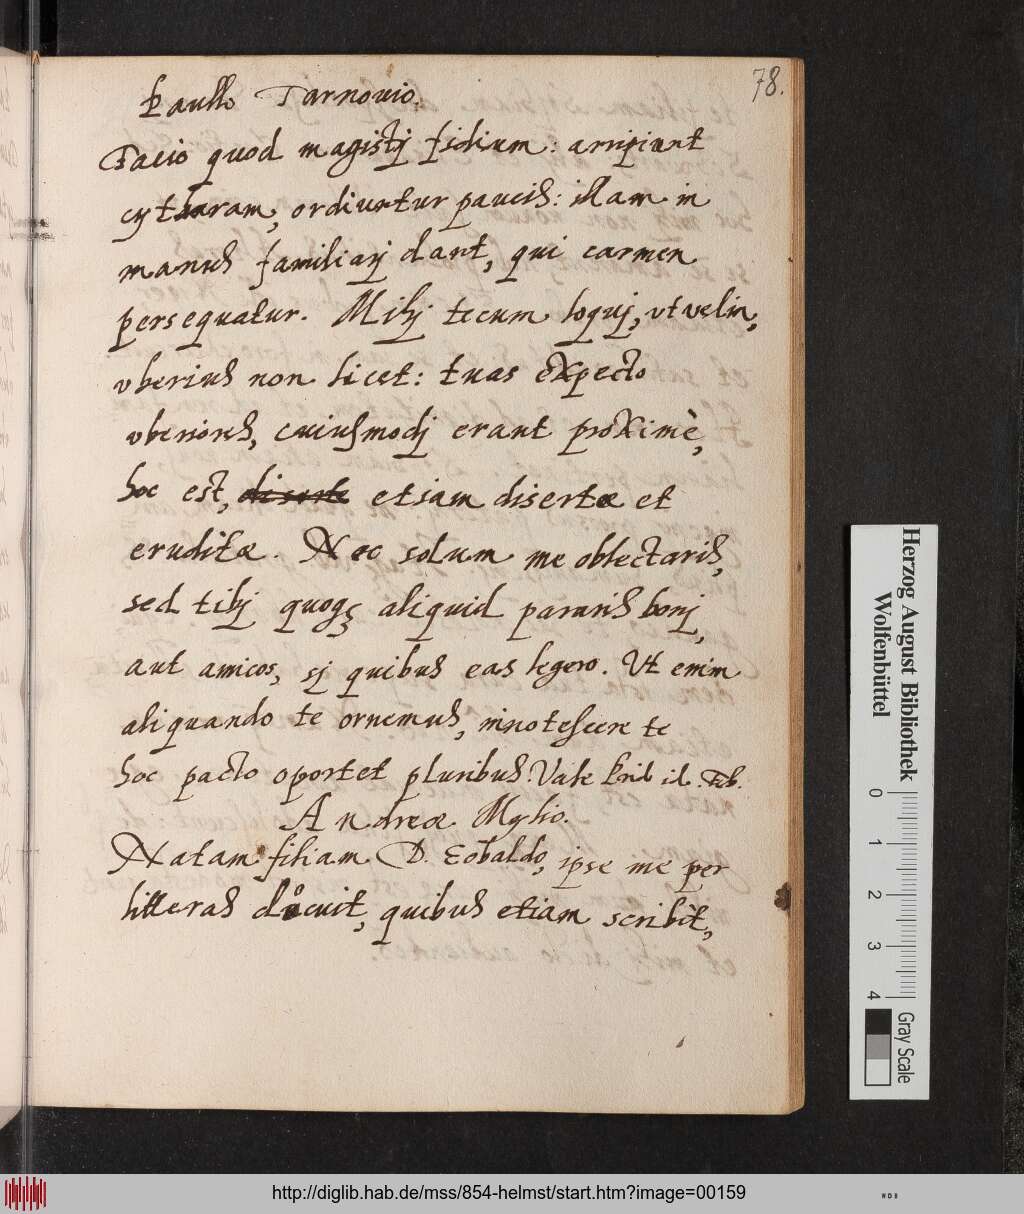 78.
Paullo Tarnouio.
Facio quod magistrj fidium: arripiunt
cytharam, ordiuntur paucis: illam in
manus familiarj dant, qui carmen
persequatur. Mihj tecum loquj, vt velim,
vberius non licet: tuas expecto
vberiores, cuiusmodj erant proximè,
hoc est, diserte etiam disertæ et
eruditæ. Nec solum me oblectaris,
sed tibj quoqȝ aliquid pararis bonj,
aut amicos, sj quibus eas legero. Vt enim
aliquando te ornemus, innotescere te
hoc pacto oportet pluribus. Vale Prid id. Feb.
Andreæ Mylio.
Natam filiam D. Eobaldo, ipse me per
litteras docuit, quibus etiam scribit,
Herzog August Bibliothek
Wolfenbüttel
0 1 2 3 4
Gray Scale
http://diglib.hab.de/mss/854-helmst/start.htm?image=00159